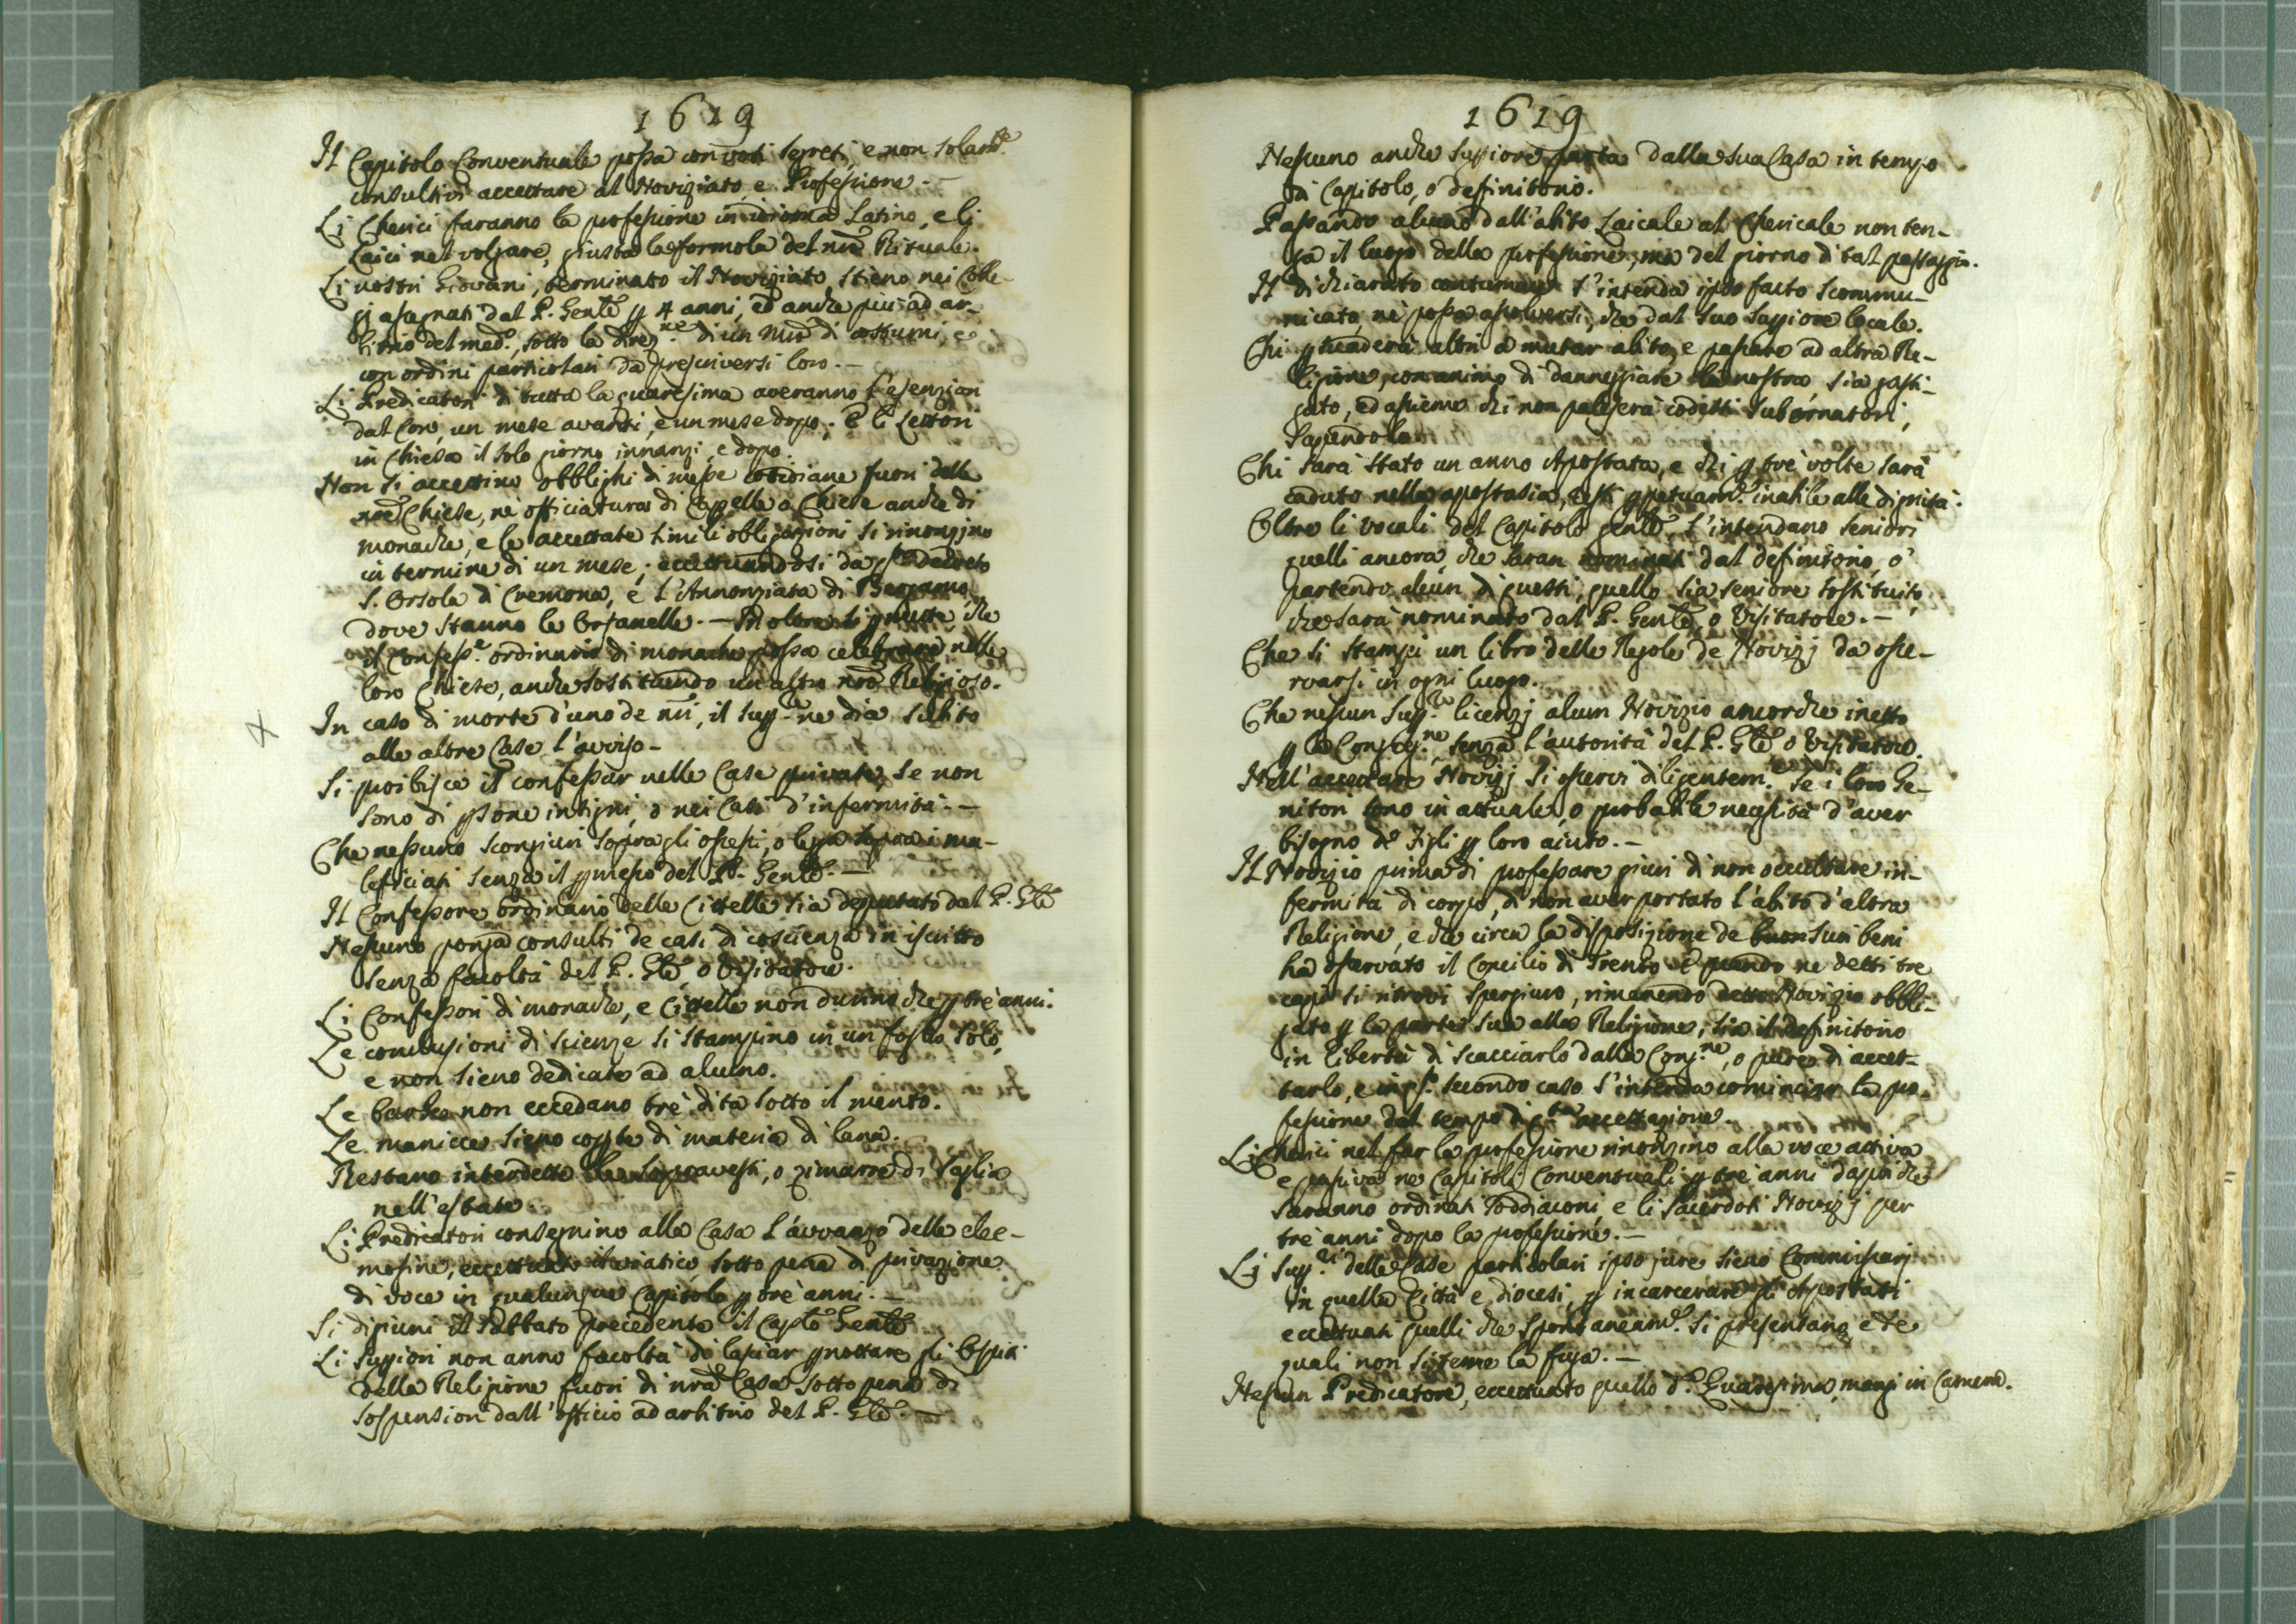 1619
Il Capitolo Conventuale possa con voti segreti, e non solam.te
consultivi accettare al Noviziato, e Professione.-
Li Cherici faranno la professione in idioma Latino, e li
Laici nel volgare, giusta la formola del nro Rituale.
Li nostri Giovani, terminato il Noviziato, stieno nei Colle-
gj assegnati dal P. Gente p 4 anni, ed anche piu ad ar-
bitrio del med.o, sotto la direz.ne di un Mro di costumi, e
con ordini particolari da prescriversi loro.-
Li Predicatori di tutta la quaresima averanno l'esenzion
dal Coro, un mese avanti, e un mese dopo; E li Lettori
in Chiesa il solo giorno innanzi, e dopo.
Non si accettino obblighi di messe cotidiane fuori delle
nre Chiese, nè officiatura di Capelle o Chiese anche di
monache, e le accettate simili obbligazioni si rinonzino
in termine di un mese; eccettuandosi da decreto
S. Orsola di Cremona, e l'Annonziata di Bergamo,
dove stanno le Orfanelle.- In oltre si pmette che
il Confess.e ordinario di monache possa celebrare nelle
loro Chiese, anche sostituendo un altro nro Religioso.
In caso di morte d'uno de nri, il Supp.re ne dia subito
alle altre Case l'avviso-
Si proibisce il confessar nelle Case private, se non
sono di psone insigni, o nei casi d'infermità.-
Che nessuno scongiuri sopra gli ossessi, o legga sopra i ma-
leficiati senza il pmesso del P. Gente.-
Il Confessore ordinario delle Cittelle sia deputato dal P. Gle
Nessuno ponga consulti de casi di coscienza in iscritto
senza facoltà del P. Gle, o Visitatore.
Li Confessori di monache, e Cittelle non durino che p trè anni.
Le conclusioni di scienze si stampino in un foglio solo,
e non sieno dedicate ad alcuno.
Le barbe non eccedano trè dita sotto il mento.
Le manicce sieno copte di materia di lana.
Restano interdette le sopravesti, o zimarre di Saglia
nell'estate.
Li Predicatori consegnino alla Casa l'avvanzo delle elee-
mosine, eccettuato il viatico, sotto pena di privazione
di voce in qualunque Capitolo p trè anni.-
Si digiuni il Sabbato precedente il Caplo Gente
Li Suppiori non anno facoltà di lasciar pnottare gli Ospiti
della Religione fuori di nra Casa sotto pena di
sospension dall'officio ad arbitrio del P. Gle.-
1619
Nessuno anche Suppiore parta dalla sua Casa in tempo
di Capitolo, o definitorio.
Passando alcuno dall'abito Laicale al Chericale non ten-
ga il luogo della professione, ma del giorno di tal passaggio.
Il dichiarato contumace s'intenda ipso facto scommu-
nicato, nè possa assolversi, che dal suo Suppiore locale.
Chi psuaderà altri a mutar abito, e passare ad altra Re-
ligione, con animo di danneggiare la nostra sia gasti-
gato, ed assieme chi non paleserà codesti subornatori,
sapendolo.
Chi sarà stato un anno Apostata, e chi p trè volte sarà
caduto nella apostasia, resti ppetuam.e inabile alle dignità.
Oltre li vocali del Capitolo gente, s'intendano Seniori
quelli ancora, che saran nominati dal definitorio, o
partendo alcun di questi, quello sia seniore sostituito,
che sarà nominato dal P. Gente, o Visitatore.-
Che si stampi un libro delle Regole de Novizj da osse-
rvarsi in ogni luogo.
Che nessun Supp.re licenzj alcun Novizio ancorche inetto
p la Congreg.ne senza l'autorità del P. Gle o Visitatore.
Nell'accettare Novizj si osservi diligentem.te se i loro Ge-
nitori sono in attuale, o probabile necessità d'aver
bisogno de Figli p loro aiuto.-
Il Novizio prima di professare giuri di non occultare in-
fermità di corpo, di non aver portato l'abito d'altra
Religione, e che circa la disposizione de suoi beni
ha osservato il Concilio di Trento. E quando ne detti tre
capi si ritrovi spergiuro, rimanendo detto Novizio obbli-
gato p la parte sua alla Religione, sia il definitorio
in libertà di scacciarlo dalla Cong.ne, o pure di accet-
tarlo, e in secondo caso s'intenda cominciar la pro-
fessione dal tempo di accettazione.
Li Cherici nel far la professione rinonzino alla voce activa
e passiva ne Capitoli Conventuali p tre anni dapoi che
saranno ordinati Soddiaconi, e li Sacerdoti Novizj per
trè anni dopo la professione.-
Li Supp.ri delle Case particolari ipso jure sieno Commissarj
in quella Città e diocesi, p incarcerare gli Apostati
eccettuati quelli che spontaneam.e si presentano e de
quali non si teme la fuga.-
Nessun Predicatore, eccettuato quello d.a Quaresima, mangi in Camera.